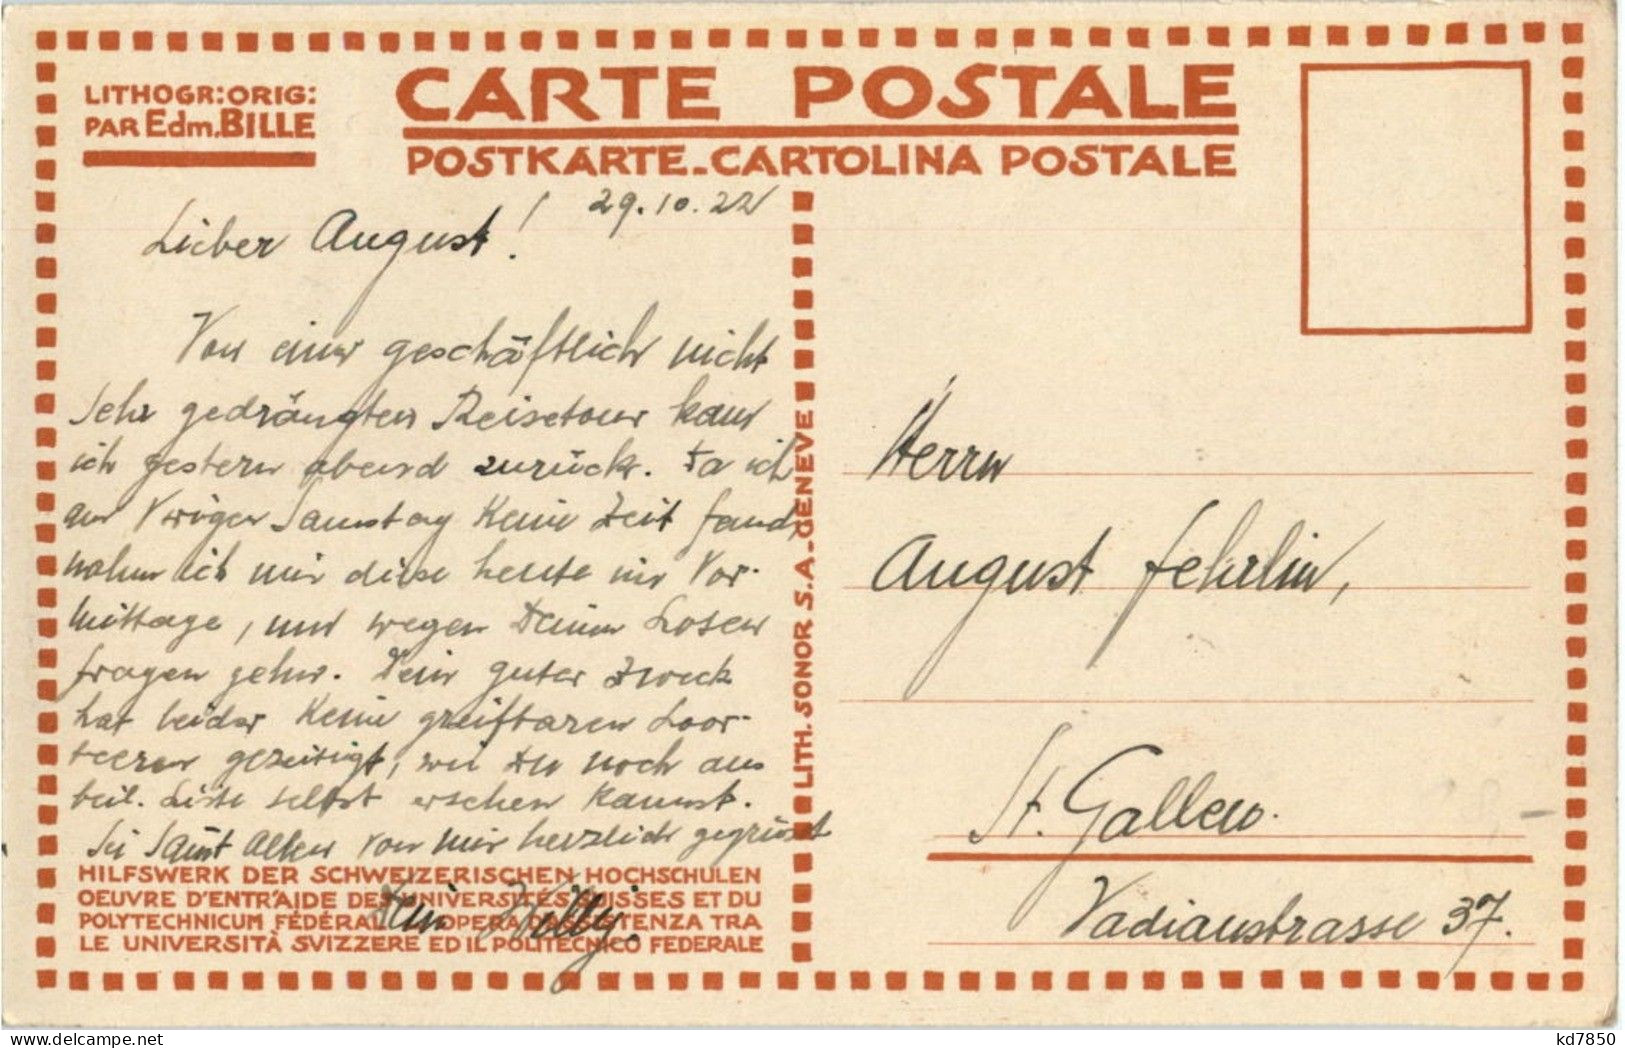 LITHOGR:ORIG:
PAR Edm. BILLE
CARTE POSTALE
POSTKARTE-CARTOLINA POSTALE
29.10.22
Lieber August!
Von einer geschäftlich nicht
sehr gedrängten Reisetour kam
ich gestern abend zurück. Da ich
am vorigen Samstag keine Zeit fand,
nahm ich mir diese heute im Vor-
mittage, um wegen Deinen Losen
fragen gehn. Dein guter Zweck
hat leider keine greifbaren Loor-
beeren gezeitigt, wie Du noch aus
beil. Liste selbst ersehen kannst.
Sei samt Allen von mir herzlich gegrüsst
Dein Willy.
HILFSWERK DER SCHWEIZERISCHEN HOCHSCHULEN
OEUVRE D'ENTR'AIDE DES UNIVERSITÉS SUISSES ET DU
POLYTECHNICUM FÉDÉRAL OPERA D'ASSISTENZA TRA
LE UNIVERSITÀ SVIZZERE ED IL POLITECNICO FEDERALE
LITH. SONOR S.A.-GENEVE
Herrn
August Fehrlin,
St. Gallen.
Vadianstrasse 37.
kd7850